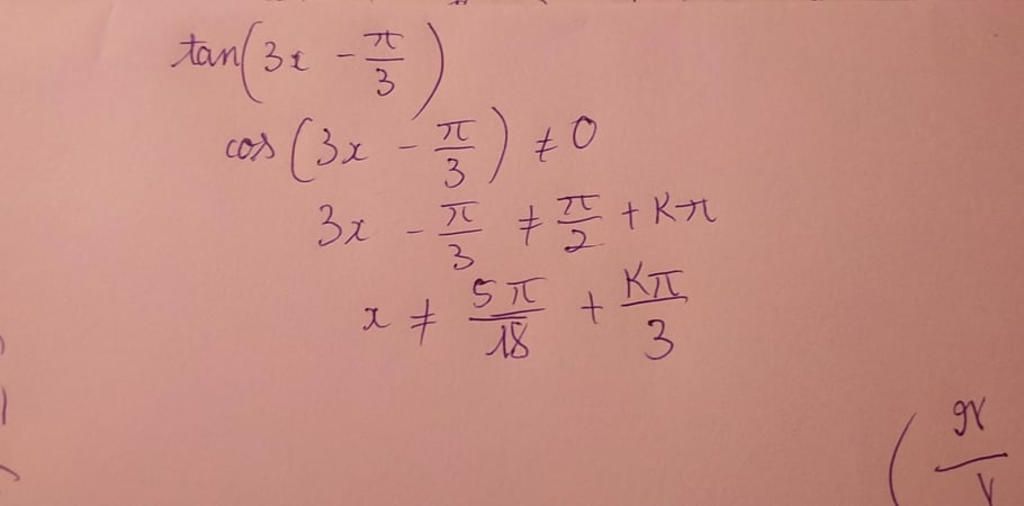 tan(3x - π/3)
cos(3x - π/3) ≠ 0
3x - π/3 ≠ π/2 + Kπ
x ≠ 5π/18 + Kπ/3